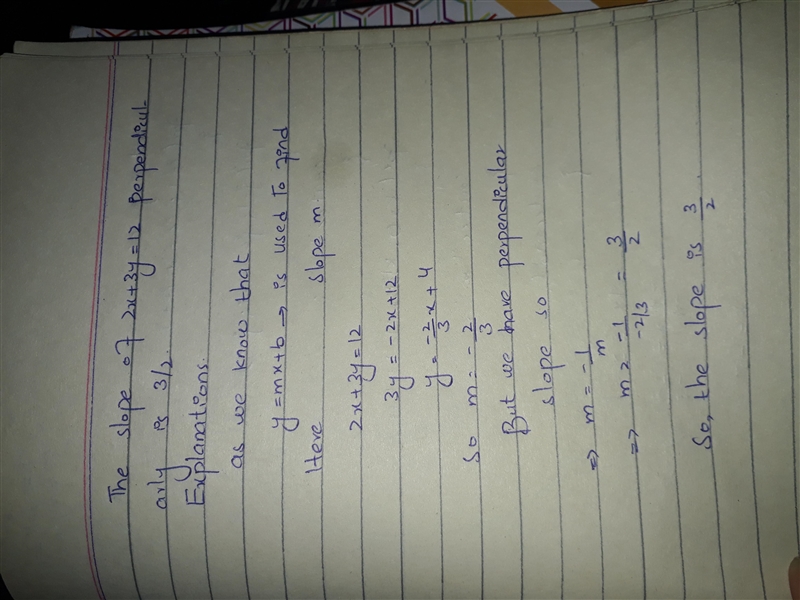 The slope of 2x+3y=12 perpendicul-
arly is 3/2.
Explanations.
as we know that
y=mx+b → is used to find
Here slope m.
2x+3y=12
3y=-2x+12
y=-2/3 x+4
So m=-2/3
But we have perpendicular
slope so
⇒ m=-1/m
⇒ m=-1/-2/3 = 3/2
So, the slope is 3/2.